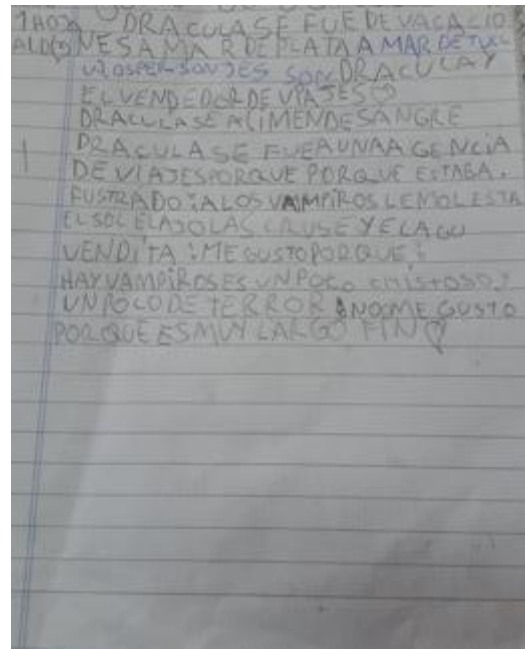 1 HOJA DRACULA SE FUE DE VACACIO
NES A MAR DE PLATA A MAR DE TUL
LOS PERSONJES SON DRACULA Y
EL VENDEDOR DE VIAJES
DRACULA SE ALIMENDE SANGRE
DRACULA SE FUE A UNA AGENCIA
DE VIAJES PORQUE PORQUE ESTABA.
FUSTRADO: A LOS VAMPIROS LE MOLESTA
EL SOL EL AJO LAS CRUSE Y EL AGU
VENDITA: ME GUSTO PORQUE:
HAY VAMPIROS ES UN POCO CHISTOSO Y
UN POCO DE TERROR NO ME GUSTO
PORQUE ES MUY LARGO FIN